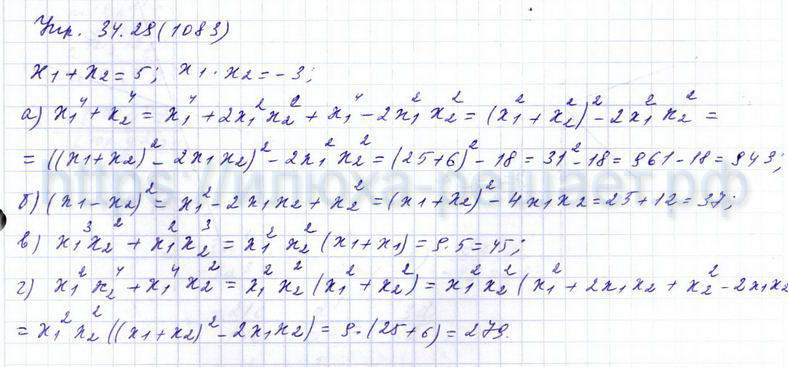 Упр. 34.28(1083)
x₁ + x₂ = 5; x₁ · x₂ = -3;
а) x₁⁴ + x₂⁴ = x₁⁴ + 2x₁²x₂² + x₁⁴ - 2x₁²x₂² = (x₁² + x₂²)² - 2x₁²x₂² =
= ((x₁+x₂)² - 2x₁x₂)² - 2x₁²x₂² = (25+6)² - 18 = 31² - 18 = 961 - 18 = 943;
б) (x₁ - x₂)² = x₁² - 2x₁x₂ + x₂² = (x₁+x₂)² - 4x₁x₂ = 25 + 12 = 37;
в) x₁³x₂² + x₁²x₂³ = x₁²x₂²(x₁+x₁) = 9·5 = 45;
г) x₁²x₂⁴ + x₁⁴x₂² = x₁²x₂²(x₁² + x₂²) = x₁²x₂²(x₁² + 2x₁x₂ + x₂² - 2x₁x₂
= x₁²x₂²((x₁+x₂)² - 2x₁x₂) = 9·(25+6) = 279.